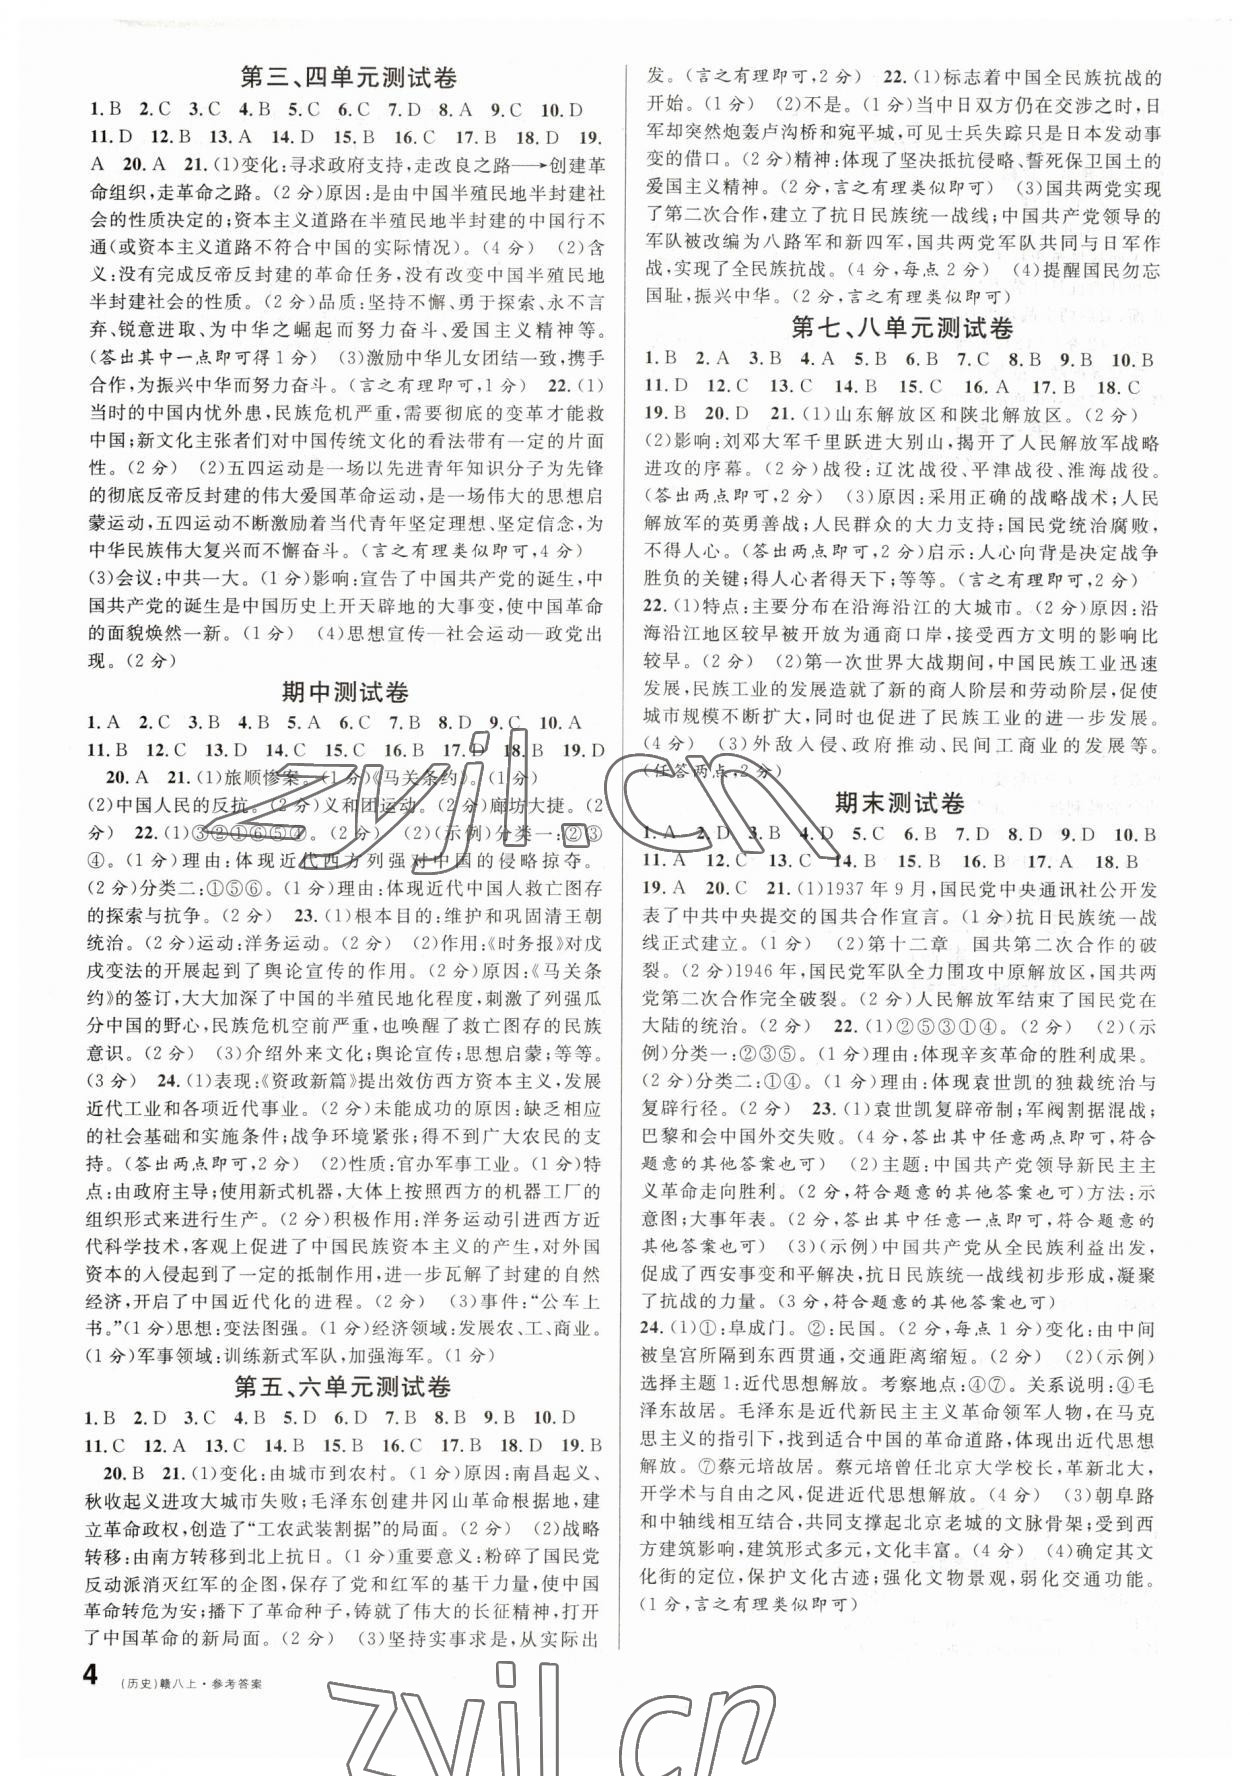 第三、四单元测试卷
1. B 2. C 3. C 4. B 5. C 6. C 7. D 8. A 9. C 10. D
11. D 12. B 13. A 14. D 15. B 16. C 17. B 18. D 19.
A 20. A 21. (1)变化:寻求政府支持,走改良之路→创建革
命组织,走革命之路。(2 分)原因:是由中国半殖民地半封建社
会的性质决定的;资本主义道路在半殖民地半封建的中国行不
通(或资本主义道路不符合中国的实际情况)。(4 分) (2)含
义:没有完成反帝反封建的革命任务,没有改变中国半殖民地
半封建社会的性质。(2 分)品质:坚持不懈、勇于探索、永不言
弃、锐意进取、为中华之崛起而努力奋斗、爱国主义精神等。
(答出其中一点即可得 1 分) (3)激励中华儿女团结一致,携手
合作,为振兴中华而努力奋斗。(言之有理即可,1 分) 22. (1)
当时的中国内忧外患,民族危机严重,需要彻底的变革才能救
中国;新文化主张者们对中国传统文化的看法带有一定的片面
性。(2 分) (2)五四运动是一场以先进青年知识分子为先锋
的彻底反帝反封建的伟大爱国革命运动,是一场伟大的思想启
蒙运动,五四运动不断激励着当代青年坚定理想、坚定信念,为
中华民族伟大复兴而不懈奋斗。(言之有理类似即可,4 分)
(3)会议:中共一大。(1 分)影响:宣告了中国共产党的诞生,中
国共产党的诞生是中国历史上开天辟地的大事变,使中国革命
的面貌焕然一新。(1 分) (4)思想宣传—社会运动—政党出
现。(2 分)
期中测试卷
1. A 2. C 3. B 4. B 5. A 6. C 7. B 8. D 9. C 10. A
11. B 12. C 13. D 14. C 15. C 16. B 17. D 18. B 19. D
20. A 21. (1)旅顺惨案。(1 分)《马关条约》。(1 分)
(2)中国人民的反抗。(2 分)义和团运动。(2 分)廊坊大捷。(2
分) 22. (1)③②①⑥⑤④。(2 分) (2)(示例)分类一:②③
④。(1 分)理由:体现近代西方列强对中国的侵略掠夺。
(2 分)分类二:①⑤⑥。(1 分)理由:体现近代中国人救亡图存
的探索与抗争。(2 分) 23. (1)根本目的:维护和巩固清王朝
统治。(2 分)运动:洋务运动。(2 分) (2)作用:《时务报》对戊
戌变法的开展起到了舆论宣传的作用。(2 分)原因:《马关条
约》的签订,大大加深了中国的半殖民地化程度,刺激了列强瓜
分中国的野心,民族危机空前严重,也唤醒了救亡图存的民族
意识。(2 分) (3)介绍外来文化;舆论宣传;思想启蒙;等等。
(3 分) 24. (1)表现:《资政新篇》提出效仿西方资本主义,发展
近代工业和各项近代事业。(2 分)未能成功的原因:缺乏相应
的社会基础和实施条件;战争环境紧张;得不到广大农民的支
持。(答出两点即可,2 分) (2)性质:官办军事工业。(1 分)特
点:由政府主导;使用新式机器,大体上按照西方的机器工厂的
组织形式来进行生产。(2 分)积极作用:洋务运动引进西方近
代科学技术,客观上促进了中国民族资本主义的产生,对外国
资本的入侵起到了一定的抵制作用,进一步瓦解了封建的自然
经济,开启了中国近代化的进程。(2 分) (3)事件:“公车上
书。”(1 分)思想:变法图强。(1 分)经济领域:发展农、工、商业。
(1 分)军事领域:训练新式军队,加强海军。(1 分)
第五、六单元测试卷
1. B 2. D 3. C 4. B 5. D 6. D 7. B 8. D 9. B 10. D
11. C 12. A 13. C 14. B 15. B 16. C 17. B 18. D 19. B
20. B 21. (1)变化:由城市到农村。(1 分)原因:南昌起义、
秋收起义进攻大城市失败;毛泽东创建井冈山革命根据地,建
立革命政权,创造了“工农武装割据”的局面。(2 分) (2)战略
转移:由南方转移到北上抗日。(1 分)重要意义:粉碎了国民党
反动派消灭红军的企图,保存了党和红军的基干力量,使中国
革命转危为安;播下了革命种子,铸就了伟大的长征精神,打开
了中国革命的新局面。(2 分) (3)坚持实事求是,从实际出
发。(言之有理即可,2 分) 22. (1)标志着中国全民族抗战的
开始。(1 分) (2)不是。(1 分)当中日双方仍在交涉之时,日
军却突然炮轰卢沟桥和宛平城,可见士兵失踪只是日本发动事
变的借口。(2 分)精神:体现了坚决抵抗侵略、誓死保卫国土的
爱国主义精神。(2 分,言之有理类似即可) (3)国共两党实现
了第二次合作,建立了抗日民族统一战线;中国共产党领导的
军队被改编为八路军和新四军,国共两党军队共同与日军作
战,实现了全民族抗战。(4 分,每点 2 分) (4)提醒国民勿忘
国耻,振兴中华。(2 分,言之有理类似即可)
第七、八单元测试卷
1. B 2. A 3. B 4. A 5. B 6. B 7. C 8. B 9. B 10. B
11. D 12. C 13. C 14. B 15. C 16. A 17. B 18. C
19. B 20. D 21. (1)山东解放区和陕北解放区。(2 分)
(2)影响:刘邓大军千里跃进大别山,揭开了人民解放军战略
进攻的序幕。(2 分)战役:辽沈战役、平津战役、淮海战役。
(答出两点即可,2 分) (3)原因:采用正确的战略战术;人民
解放军的英勇善战;人民群众的大力支持;国民党统治腐败,
不得人心。(答出两点即可,2 分)启示:人心向背是决定战争
胜负的关键;得人心者得天下;等等。(言之有理即可,2 分)
22. (1)特点:主要分布在沿海沿江的大城市。(2 分)原因:沿
海沿江地区较早被开放为通商口岸,接受西方文明的影响比
较早。(2 分) (2)第一次世界大战期间,中国民族工业迅速
发展,民族工业的发展造就了新的商人阶层和劳动阶层,促使
城市规模不断扩大,同时也促进了民族工业的进一步发展。
(4 分) (3)外敌入侵、政府推动、民间工商业的发展等。
(任答两点,2 分)
期末测试卷
1. A 2. D 3. B 4. D 5. C 6. B 7. B 8. D 9. D 10. B
11. A 12. C 13. C 14. B 15. B 16. A 17. A 18. B
19. A 20. C 21. (1)1937 年 9 月,国民党中央通讯社公开发
表了中共中央提交的国共合作宣言。(1 分)抗日民族统一战
线正式建立。(1 分) (2)第十二章 国共第二次合作的破
裂。(2 分)1946 年,国民党军队全力围攻中原解放区,国共两
党第二次合作完全破裂。(2 分)人民解放军结束了国民党在
大陆的统治。(2 分) 22. (1)②⑤③①④。(2 分) (2)(示
例)分类一:②③⑤。(1 分)理由:体现辛亥革命的胜利成果。
(2 分)分类二:①④。(1 分)理由:体现袁世凯的独裁统治与
复辟行径。(2 分) 23. (1)袁世凯复辟帝制;军阀割据混战;
巴黎和会中国外交失败。(4 分,答出其中任意两点即可,符合
题意的其他答案也可) (2)主题:中国共产党领导新民主主
义革命走向胜利。(2 分,符合题意的其他答案也可)方法:示
意图;大事年表。(2 分,答出其中任意一点即可,符合题意的
其他答案也可) (3)(示例)中国共产党从全民族利益出发,
促成了西安事变和平解决,抗日民族统一战线初步形成,凝聚
了抗战的力量。(3 分,符合题意的其他答案也可)
24. (1)①:阜成门。②:民国。(2 分,每点 1 分)变化:由中间
被皇宫所隔到东西贯通,交通距离缩短。(2 分) (2)(示例)
选择主题 1:近代思想解放。考察地点:④⑦。关系说明:④毛
泽东故居。毛泽东是近代新民主主义革命领军人物,在马克
思主义的指引下,找到适合中国的革命道路,体现出近代思想
解放。⑦蔡元培故居。蔡元培曾任北京大学校长,革新北大,
开学术与自由之风,促进近代思想解放。(4 分) (3)朝阜路
和中轴线相互结合,共同支撑起北京老城的文脉骨架;受到西
方建筑影响,建筑形式多元,文化丰富。(4 分) (4)确定其文
化街的定位,保护文化古迹;强化文物景观,弱化交通功能。
(1 分,言之有理类似即可)
4 (历史)赣八上·参考答案
zyjl.cn
zyjl.cn